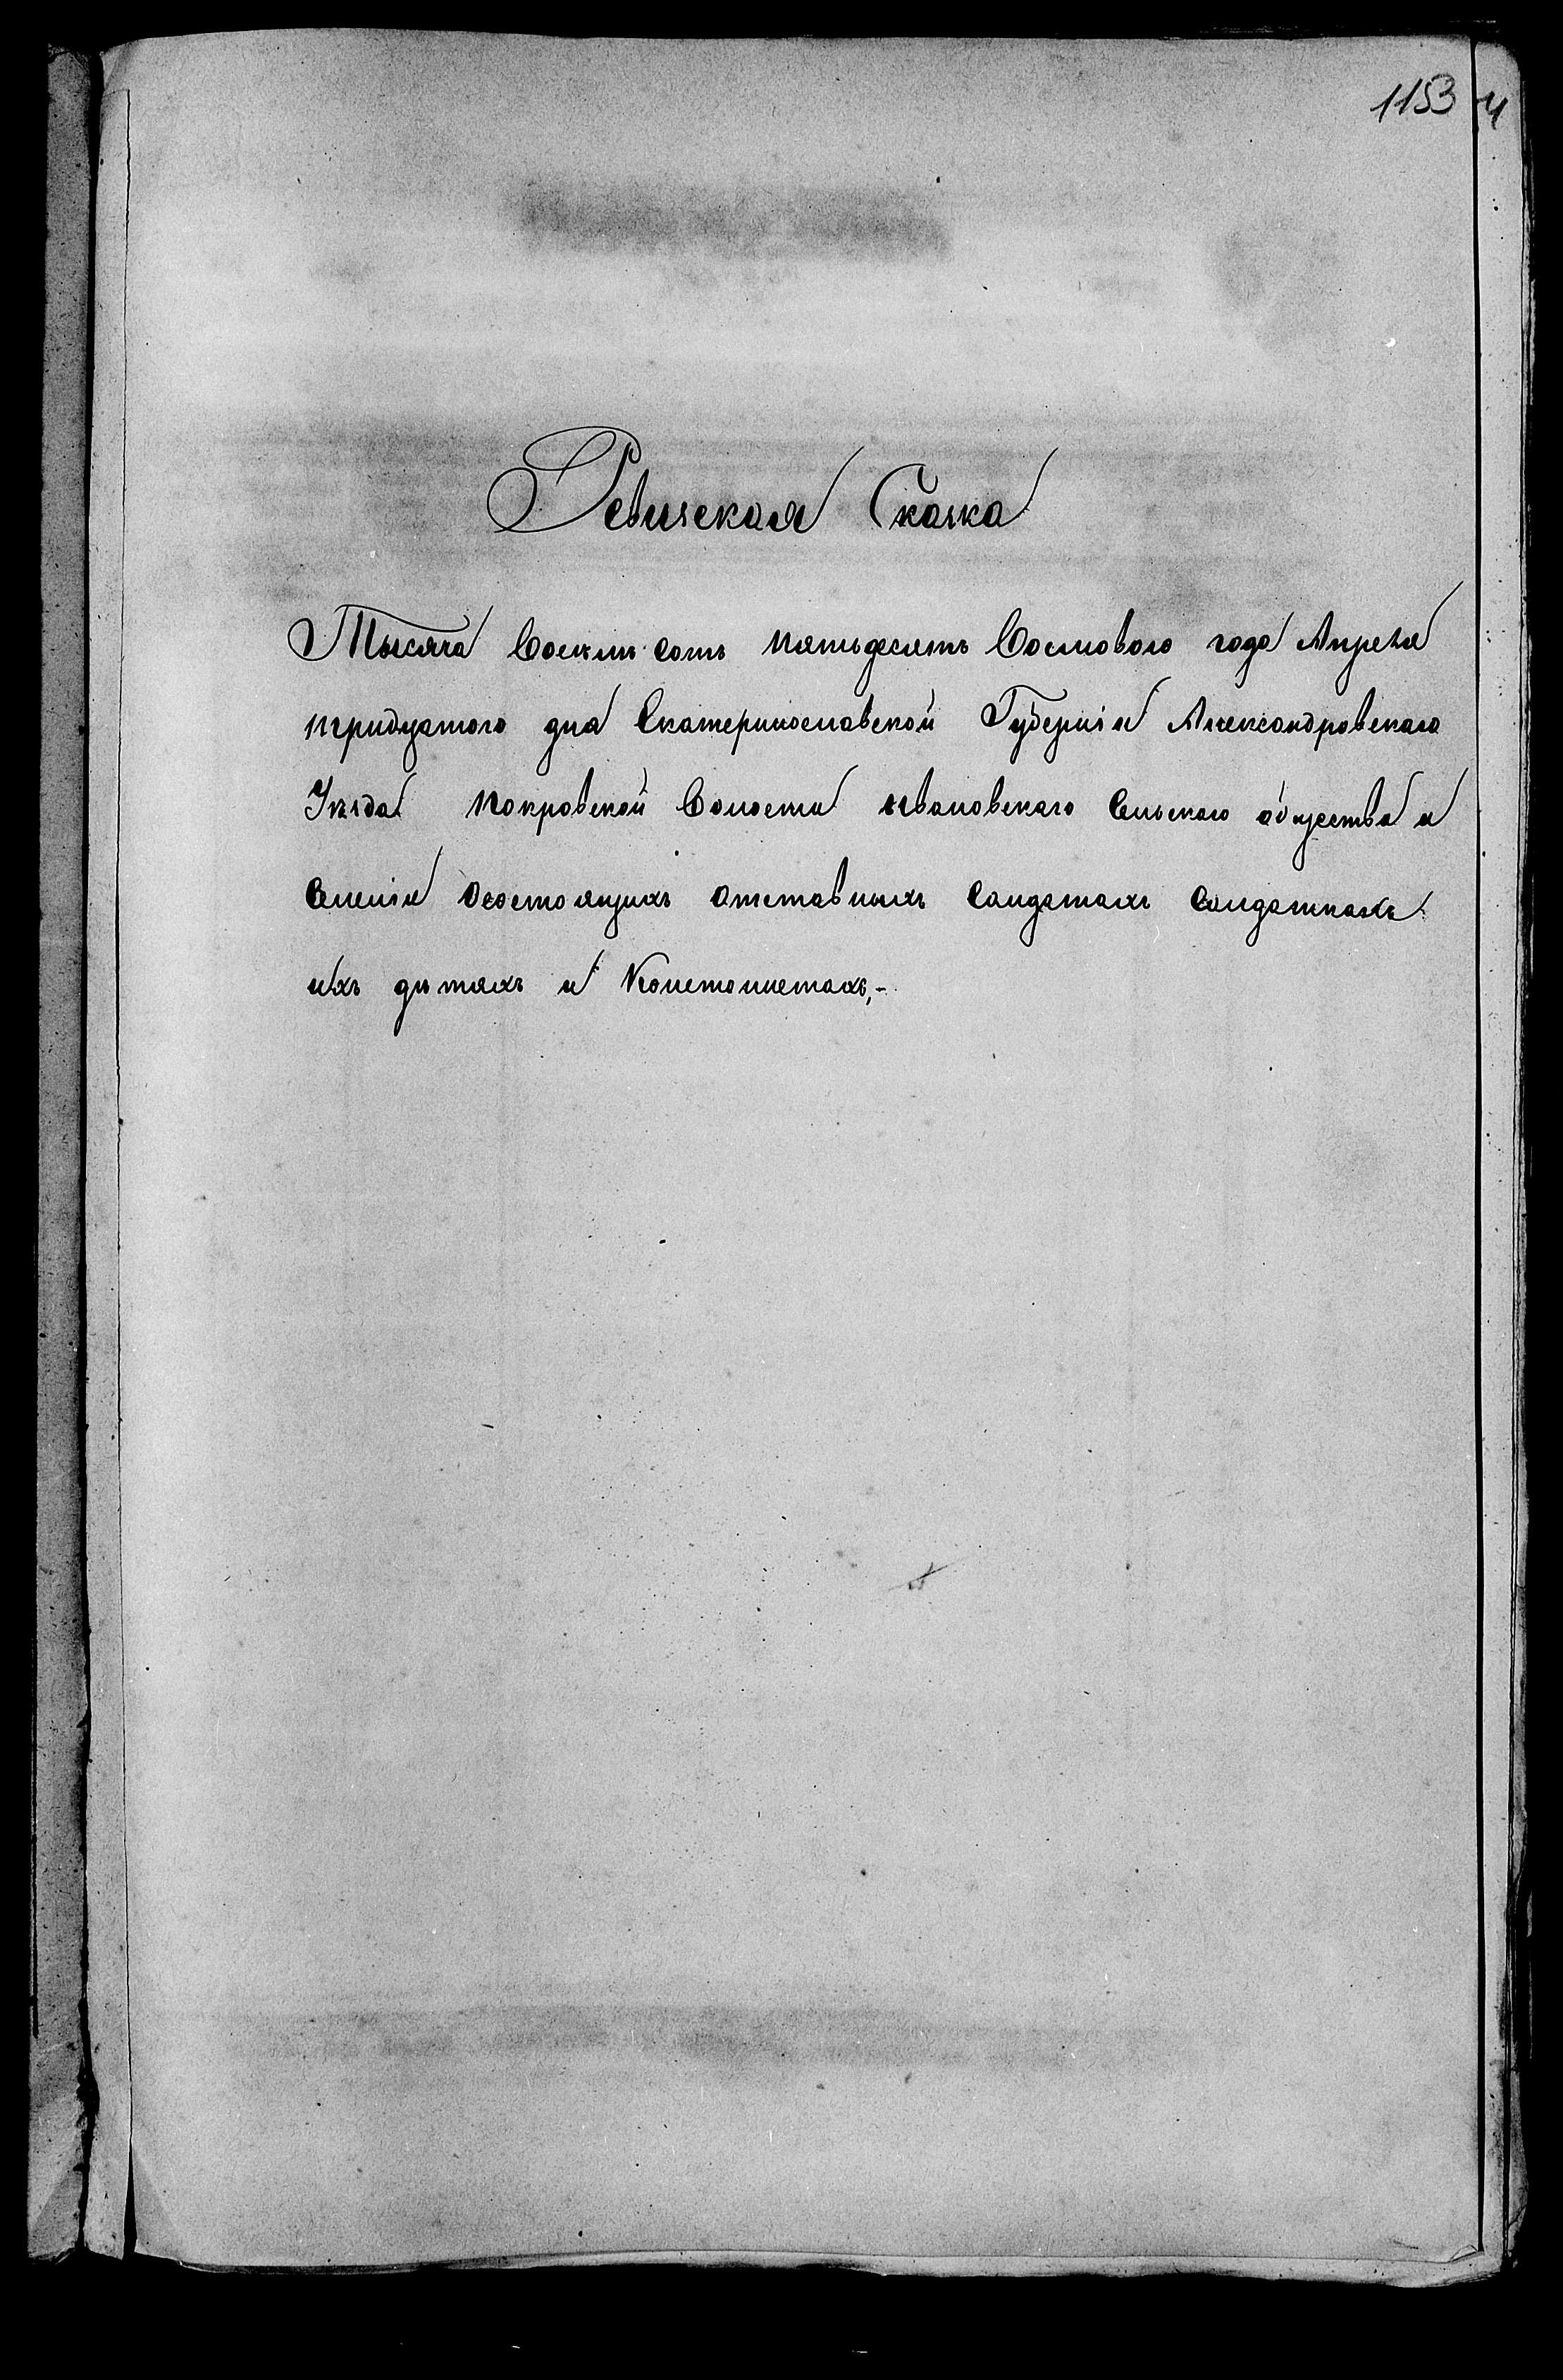 1153 ч
Ревизская Сказка
Тысяча Восемь сотъ пятьдесятъ Восмового года Апреля
тридцатого дня Екатеринославской Губерніи Александровскаго
Уезда Покровской Волости Ивановскаго Сельскаго общества и
Селенія Осостоящихъ отставныхъ Салдатахъ Салдаткахъ
ихъ детяхъ и Контонистахъ,-